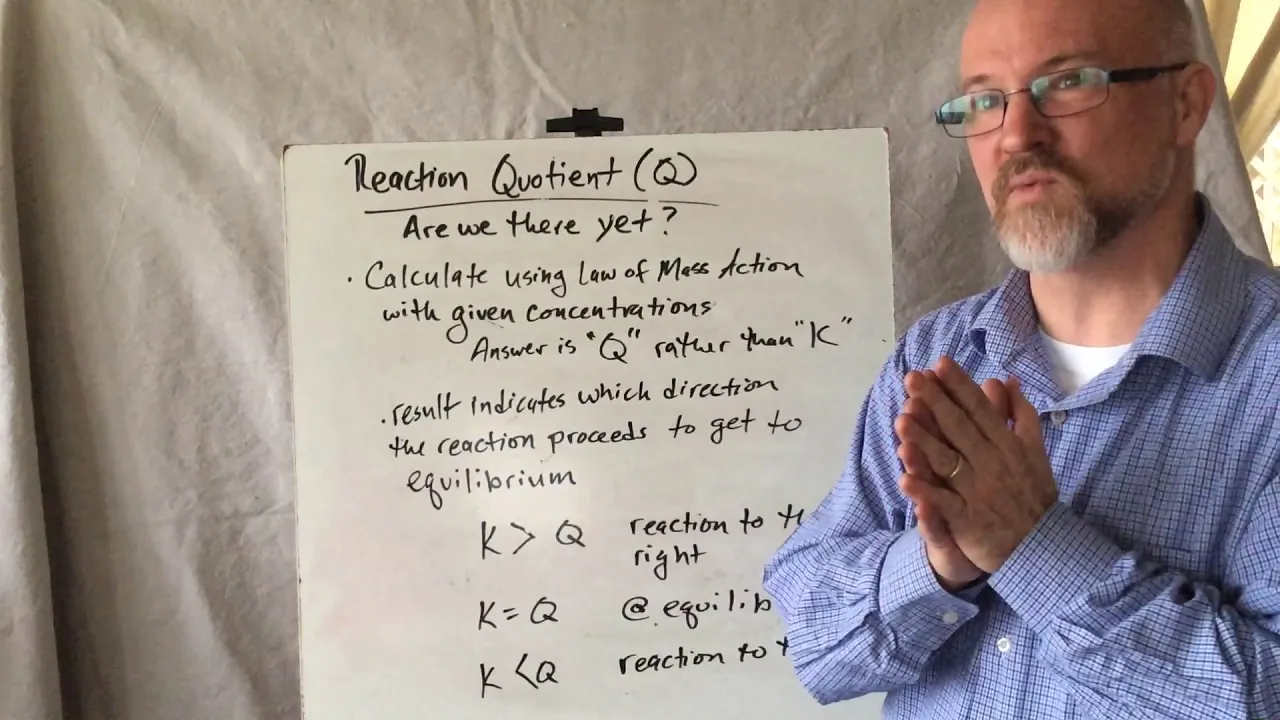 Reaction Quotient (Q)
Are we there yet?
· Calculate using Law of Mass Action
with given concentrations
Answer is "Q" rather than "K"
· result indicates which direction
the reaction proceeds to get to
equilibrium
K > Q reaction to th
right
K = Q @ equilib
K < Q reaction to t